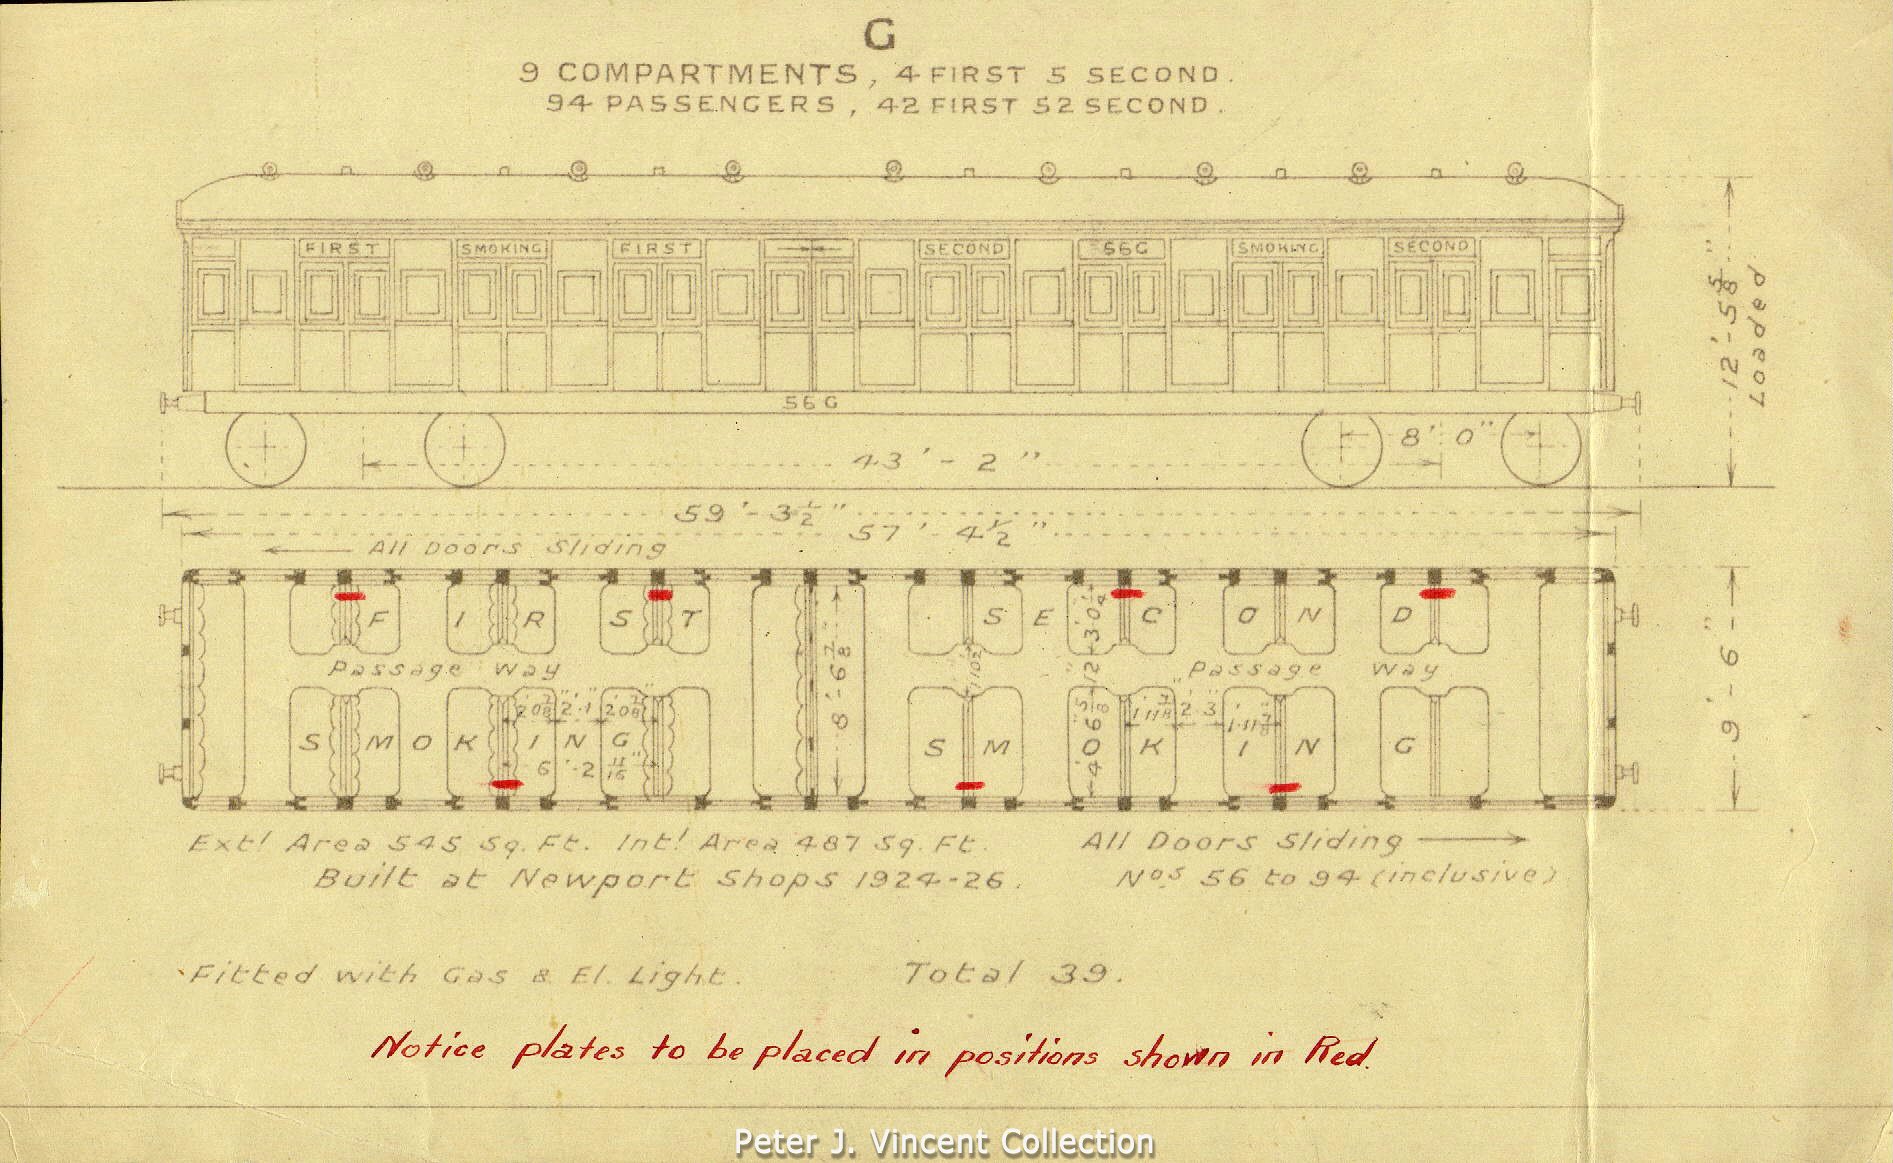 G
9 COMPARTMENTS, 4 FIRST 5 SECOND.
94 PASSENGERS, 42 FIRST 52 SECOND.
FIRST SMOKING FIRST SECOND 56G SMOKING SECOND
12'-5 5/8" Loaded
56G
8'-0"
43'-2"
59'-3 1/2"
57'-4 1/2"
All Doors Sliding
F I R S T S E C O N D
Passage Way Passage Way
8'-6 7/8"
9'-6"
2'0 7/8" 2'1" 2'0 7/8"
1'11 7/8" 2'3" 1'11 7/8"
S M O K I N G S M K I N G
6'-2 11/16"
Extl Area 545 Sq. Ft. Intl Area 487 Sq. Ft.
All Doors Sliding
Built at Newport Shops 1924-26.
Nos 56 to 94 (inclusive)
Fitted with Gas & El. Light. Total 39.
Notice plates to be placed in positions shown in Red.
Peter J. Vincent Collection